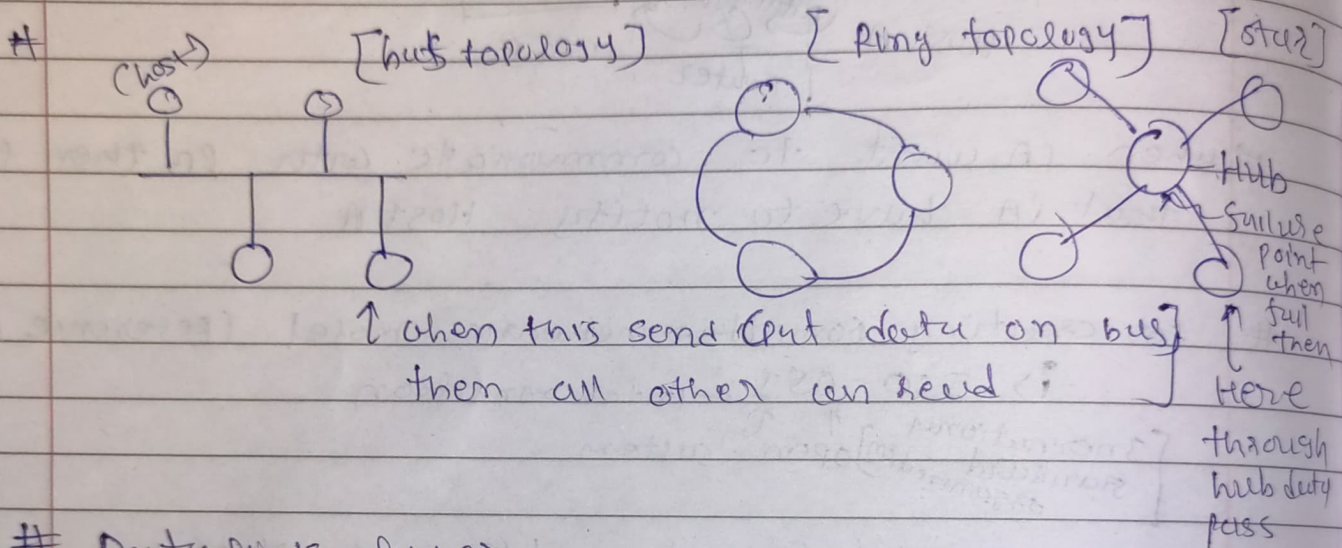 # [bus topology] [Ring topology] [star]
(host)
Hub
failure
point
when
fail
then
↑ when this send (put data on bus]
then all other can read
↑
Here
through
hub data
pass
#